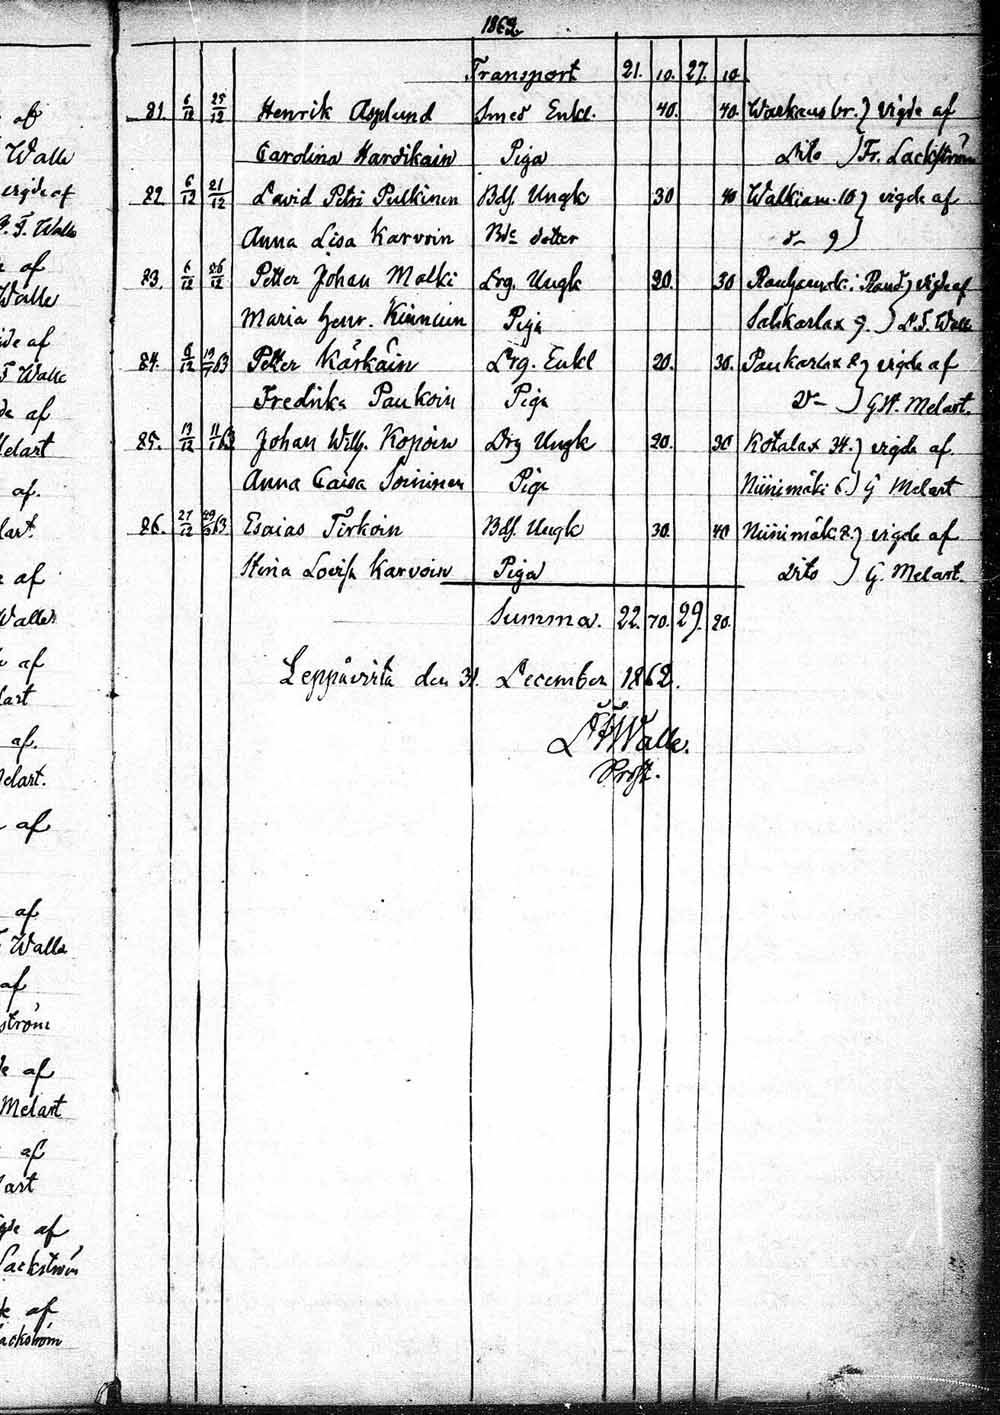 1862
Transport 21. 10. 27. 10.
81. 6/12 25/12 Henrik Asplund Smed Enkl. 40. 40. Warkaus br. } vigde af
Carolina Hardikain Piga Dito } Fr. Lackström
82. 6/12 21/12 David Petri Pulkinen Bdf. Ungk 30 40 10 } vigde af
Anna Lisa Karvoin Bde dotter d- 9 }
83. 6/12 26/12 Petter Johan Malki Drg. Ungk 20. 30 } vigde af
Maria Henr. Kinnuin Piga Sahkarlax 9. } L. F. Walle
84. 6/12 63 Petter Kärkäin Drg. Enkl 20. 30. Paukarlax 2 } vigde af
Fredrika Paukoin Piga D- } G.W. Melart.
85. 13/12 Johan Wilh. Kopoin Drg Ungk 20. 30 Kotalax 34. } vigde af.
Anna Caisa Soininen Piga Niinimäki 6 } G Melart
86. 27/12 63 Esaias Tirkoin Bdf. Ungk 30. 40 Niinimäk. 2. } vigde af
Stina Lovisa Karvoin Piga Dito } G. Melart.
Summa. 22. 70. 29. 20.
Leppävirta den 31. December 1862.
L F Walle.
Prost.
af
Walle
vigde af
L. F. Walle
af
Walle
vigde af
F Walle
de af
Melart
af.
lart.
af
Walle
af
lart
af.
Melart.
af
af
Walle
af
ström
de af
Melart
af
lart
vigde af
Lackström
de af
Lackström